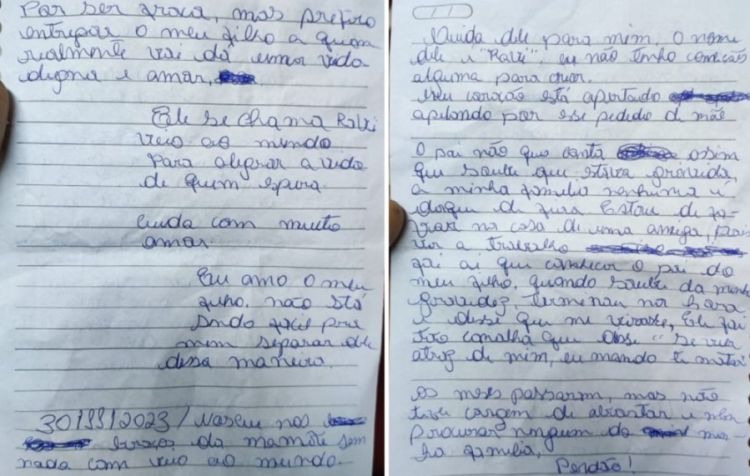 Por ser fraca, mas prefiro
entregar o meu filho a quem
realmente vai dá uma vida
digna e amor.
Ele se chama Ravi
veio ao mundo
para alegrar a vida
de quem espera.
Cuida com muito
amor.
Eu amo o meu
filho, não stá
sndo facil pra
mim separar dele
dessa maneira.
30/11/2023/ Nasceu nos
braços da mamãe sem
nada com veio ao mundo.
Cuida dele para mim, o nome
dele é "Ravi", eu não tenho condição
alguma para criar.
Meu coração está apertado
apelando por esse pedido de mãe
O pai não quis conta assim
que soube que estava gravida,
a minha familia nenhuma é
daqui de fora Estou de fa-
vor na casa de uma amiga, pois
vim a trabalho
foi ai que conhecer o pai do
meu filho, quando soube da minha
gravidez, terminou na hora
e disse que me virasse, Ele foi
tão canalha que disse "Se vier
atraz de mim, eu mando te matar
os meses passarm, mas não
tive coragem de abortar e nem
procurar ninguem da mi-
ha familia,
Perdão!